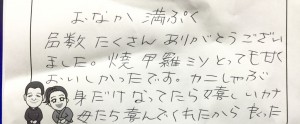 おなか満ぷく
品数たくさんありがとうござい
ました。焼甲羅ミソとっても甘く
おいしかったです。カニしゃぶ
身だけなってたら嬉しいカナ
母たち奪んでくれたから良った